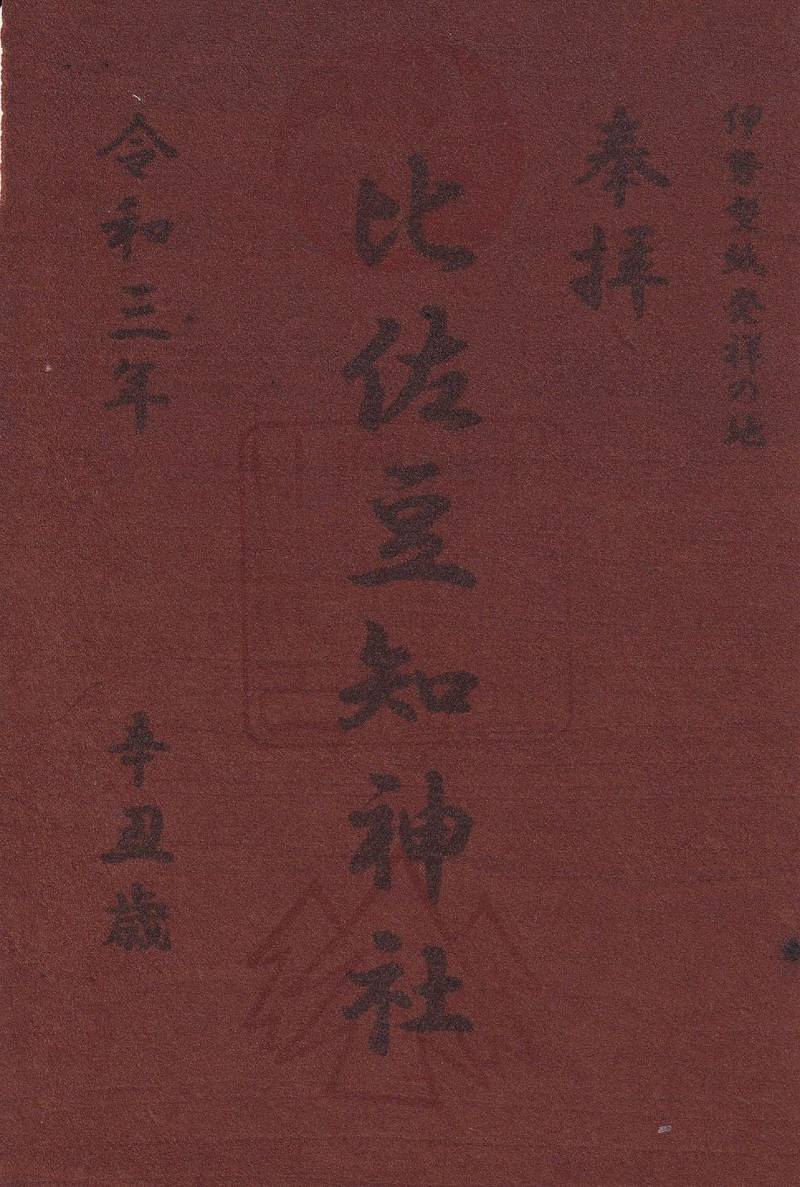 伊勢型紙発祥の地
奉拝
比佐豆知神社
令和三年
辛丑歳